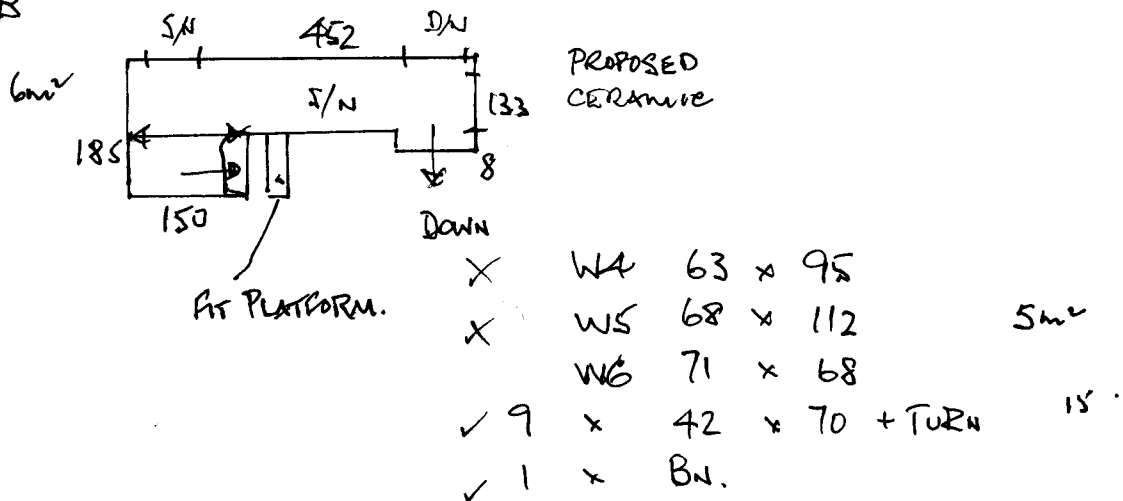 S/N 452 D/N
PROPOSED
CERAMIC
6m²
S/N
133
185
8
150
DOWN
FIT PLATFORM.
X W4 63 x 95
X W5 68 x 112 5m²
W6 71 x 68
✓ 9 x 42 x 70 + TURN 15
✓ 1 x BN.